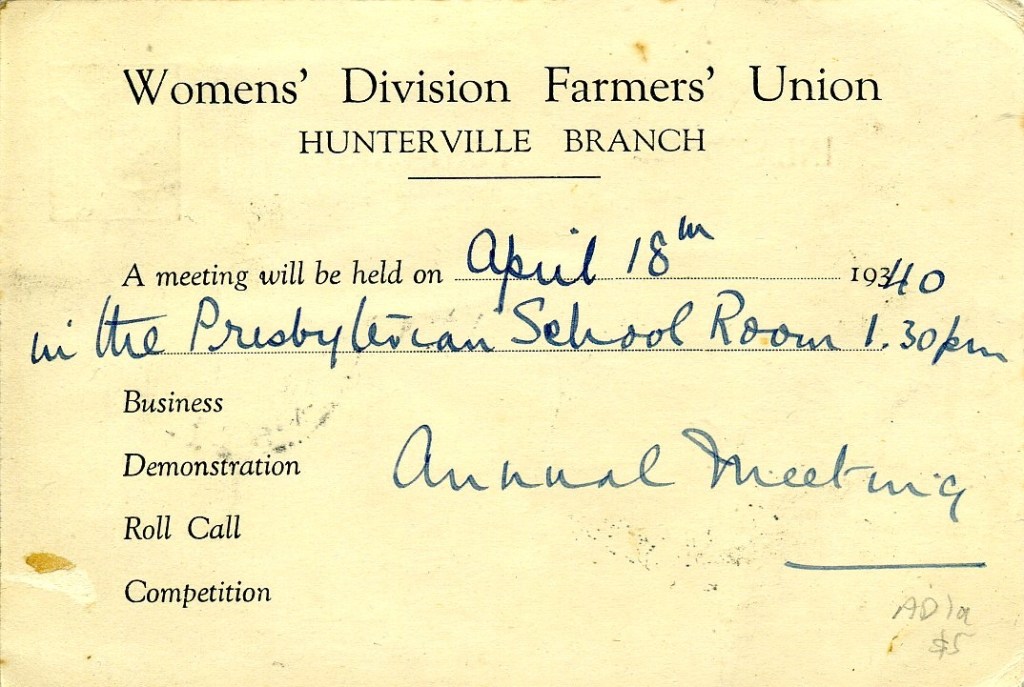 Womens' Division Farmers' Union
HUNTERVILLE BRANCH
A meeting will be held on April 18th 19340
in the Presbyterian School Room 1.30pm
Business
Annual Meeting
Demonstration
Roll Call
Competition
$5